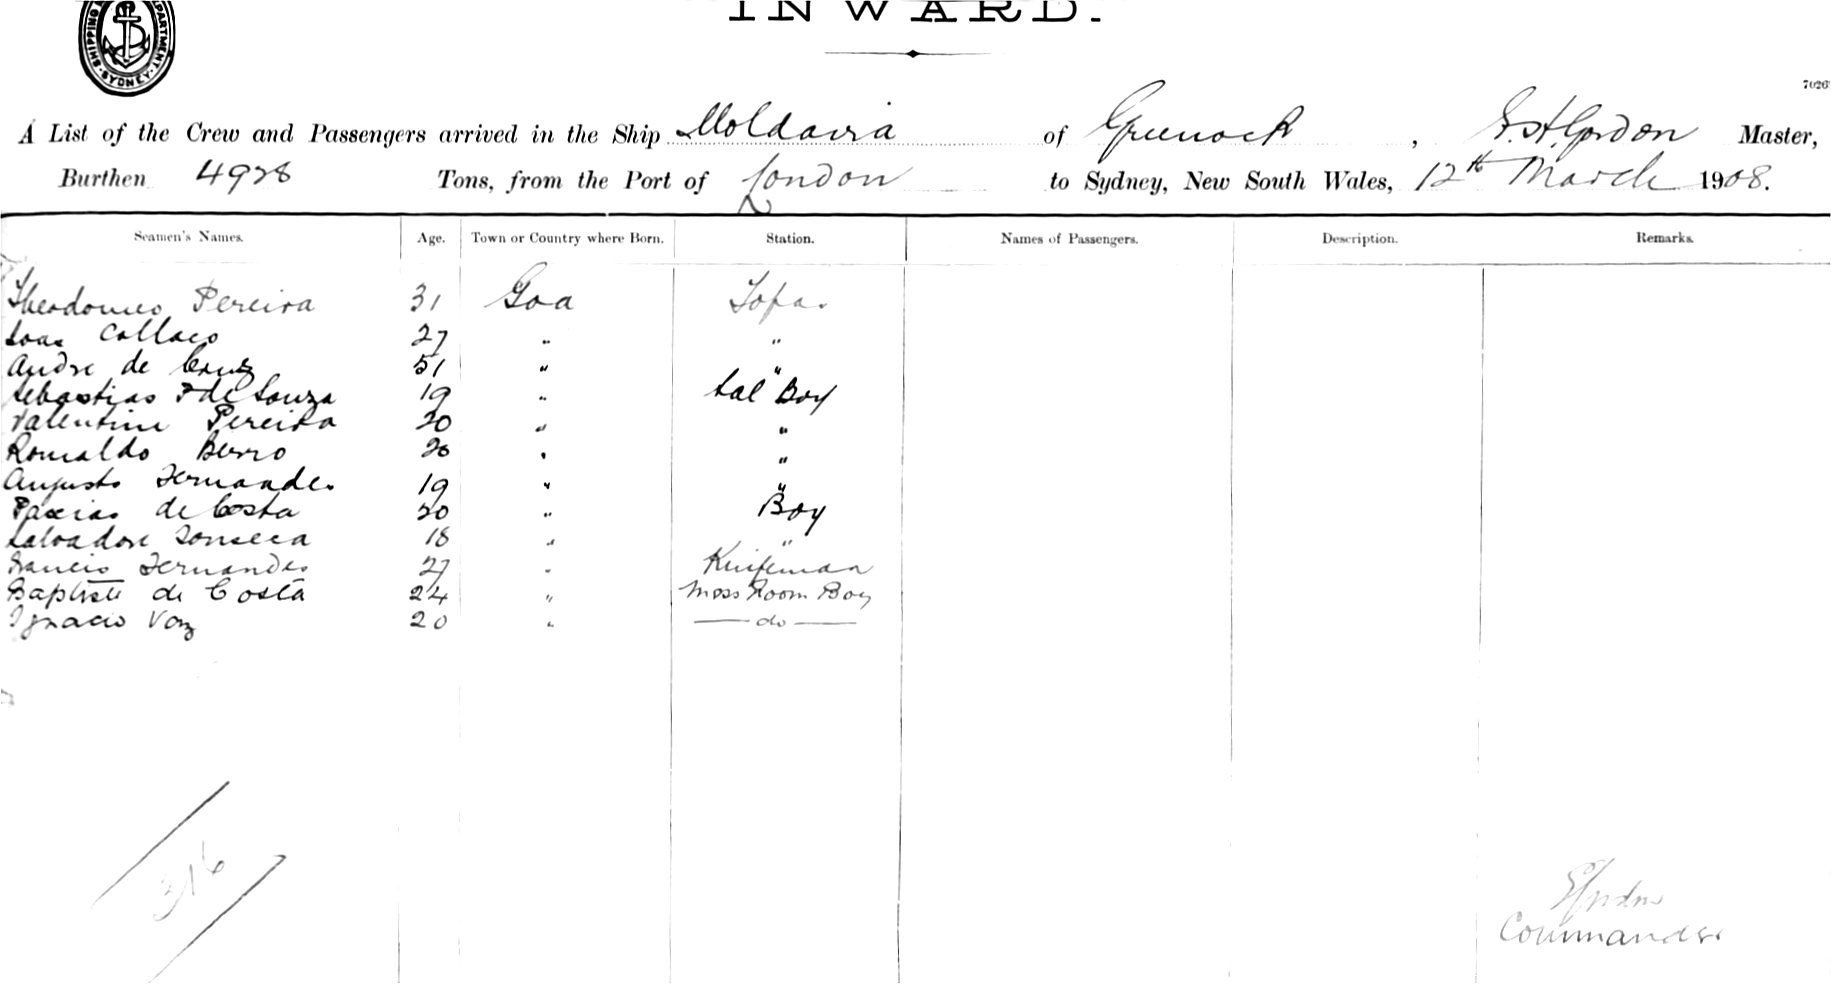 INWARD.
SHIPPING DEPARTMENT SYDNEY
7026
A List of the Crew and Passengers arrived in the Ship Moldavia of Greenock, Gordon Master,
Burthen 4928 Tons, from the Port of London to Sydney, New South Wales, 12th March 1908.
Seamen's Names. Age. Town or Country where Born. Station. Names of Passengers. Description. Remarks.
Pereira 31 Goa Topas
Collaco 27 " "
Andre de Cruz 51 " "
Sebastiao F de Souza 19 " Sal Boy
Valentine Pereira 20 " "
Romaldo Berro 20 " "
Augusto Fernandes 19 " "
de Costa 20 " Boy
Salvadore Fonseca 18 " "
Francis Fernandes 27 " Knifeman
Baptiste de Costa 24 " Mess Room Boy
Ignacio Vaz 20 " do
316
Commander